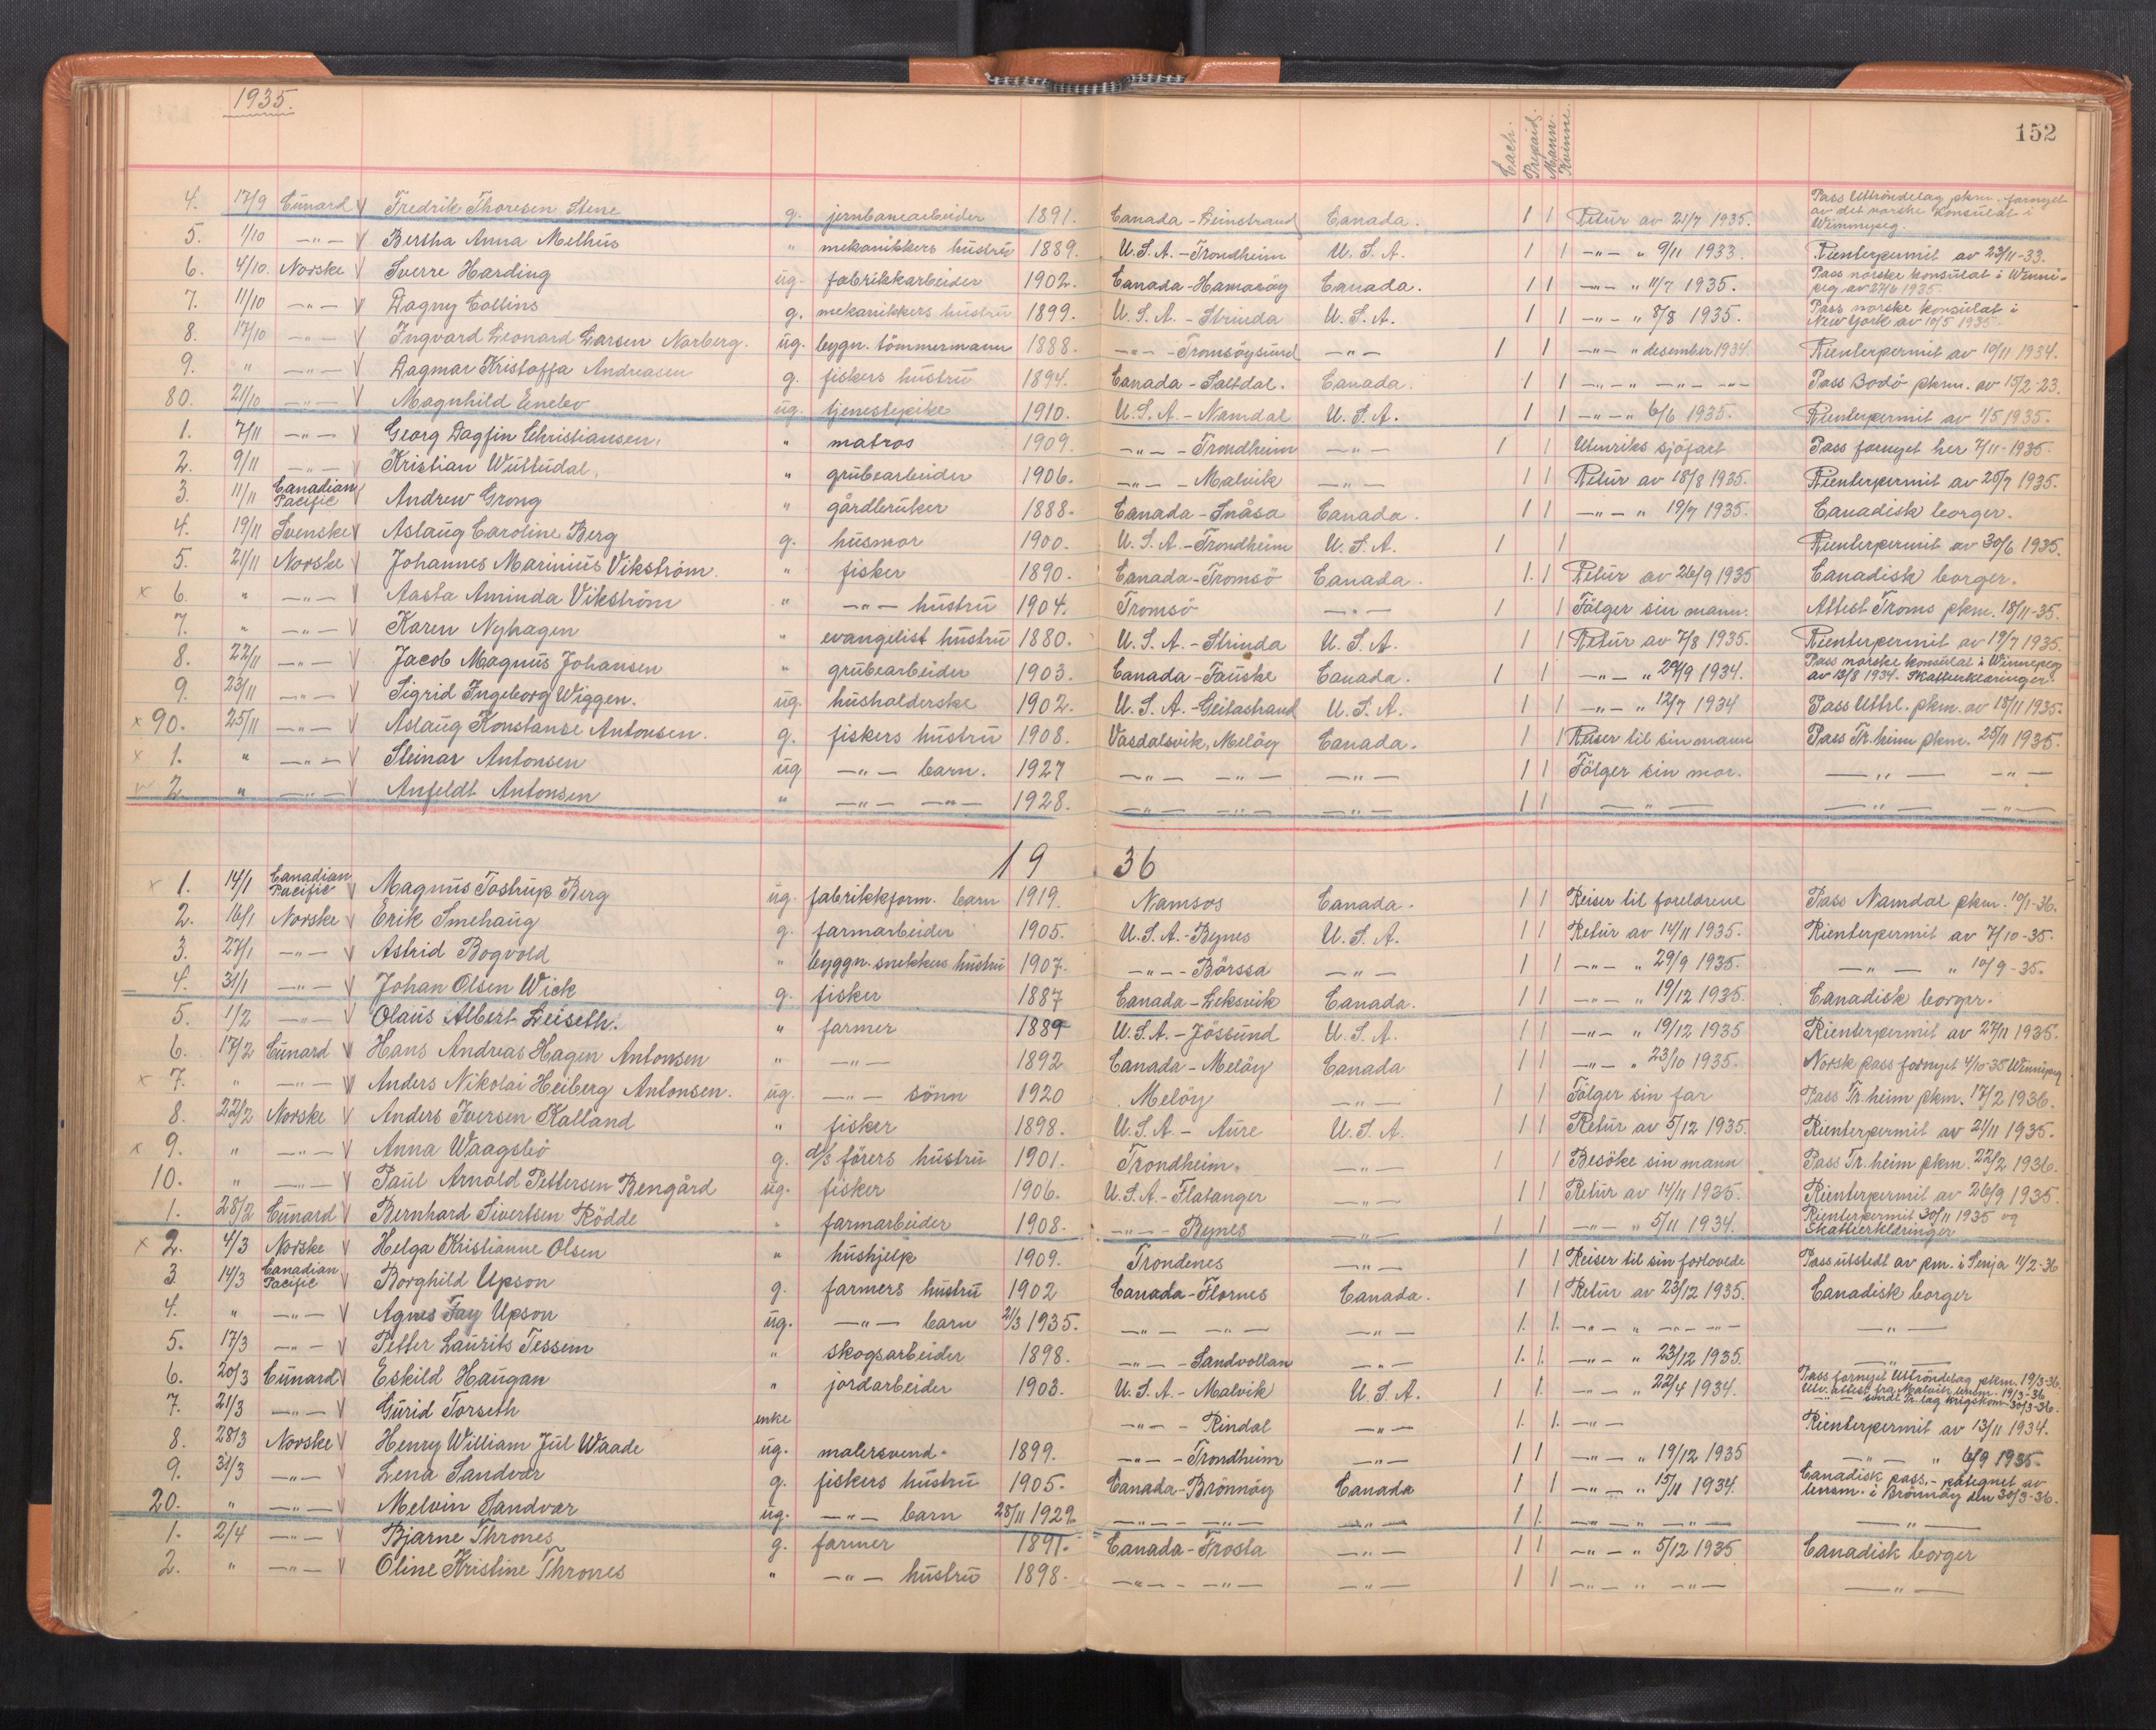 1935.
152
Cach. Prepaid. Mann. Kvinne.
4. 17/9 Cunard V Fredrik Thoresen Stene g. jernbanearbeider 1891. Canada - Leinstrand Canada. 1 1 Retur av 21/7 1935. Pass Uttröndelag pkm. fornyet av det norske Konsulat i Winnipeg.
5. 1/10 -"- V Bertha Anna Melhus " mekanikkers hustru 1889. U.S.A. - Trondheim U.S.A. 1 1 -"- " 9/11 1933. Rienterpermit av 23/11-33.
6. 4/10. Norske V Sverre Harding ug. fabrikkarbeider 1902. Canada - Hamaröy Canada. 1 1 -"- " 11/7 1935. Pass norske konsulat i Winnipeg av 27/6 1935.
7. 11/10 -"- V Dagny Collins g. mekanikkers hustru 1899. U.S.A. - Strinda U.S.A. 1 1 -"- " 8/8 1935. Pass norske konsulat i New York av 10/5 1935.
8. 17/10 -"- V Ingvard Leonard Larsen Norberg. ug. bygn. tömmermann 1888. -"- - Tromsöysund -"- 1 1 -"- " desember 1934. Rienterpermit av 19/11 1934.
9. " -"- V Dagmar Kristoffa Andreasen g. fiskers hustru 1894. Canada - Saltdal. Canada. 1 1 -"- " -"- -"- Pass Bodö pkm. av 15/2-23.
80. 21/10 -"- V Magnhild Enebo ug. tjenestepike 1910. U.S.A. - Namdal U.S.A. 1 1 -"- " 6/6 1935. Rienterpermit av 1/5 1935.
1. 7/11 -"- V Georg Dagfin Christiansen. " matros 1909. -"- - Trondheim -"- 1 1 Utenriks sjöfart Pass fornyet her 7/11-1935.
2. 9/11 -"- Kristian Wuttudal. " grubearbeider 1906. -"- - Malvik -"- 1 1 Retur av 18/8 1935. Rienterpermit av 25/7 1935.
3. 11/11 Canadian Pacific V Andrew Grong " gårdbruker 1888. Canada - Snåsa Canada. 1 1 -"- " 19/7 1935. Canadisk borger.
4. 19/11 Svenske V Aslaug Caroline Berg g. husmor 1900. U.S.A. - Trondheim U.S.A. 1 1 Rienterpermit av 30/6 1935.
5. 21/11 Norske V Johannes Marinius Vikström. " fisker 1890. Canada - Tromsö Canada. 1. 1 Retur av 26/9 1935 Canadisk borger.
x 6. " -"- V Aasta Aminda Vikström " -"- hustru 1904. Tromsö -"- 1 1 Fölger sin mann. Attest Troms pkm. 18/11-35.
7. " -"- V Karen Nyhagen " evangelist hustru 1880. U.S.A. - Strinda U.S.A. 1 1 Retur av 7/8 1935. Rienterpermit av 19/7 1935.
8. 22/11 -"- V Jacob Magnus Johansen " grubearbeider 1903. Canada - Fauske Canada. 1 1 -"- " 29/9 1934. Pass norske konsulat i Winnepeg av 13/8 1934. Skatteerklæringer.
9. 23/11 -"- V Sigrid Ingeborg Wiggen. ug. husholderske 1902. U.S.A. - Geitastrand U.S.A. 1 1 -"- " 12/7 1934 Pass Uttrl. pkm. av 18/11 1935.
x 90. 25/11 -"- V Aslaug Konstanse Antonsen. g. fiskers hustru 1908. Vasdalsvik, Melöy Canada. 1 1 Reiser til sin mann Pass Tr.heim pkm. 25/11 1935.
x 1. " -"- V Steinar Antonsen ug -"- barn. 1927 -"- -"- -"- 1 1 Fölger sin mor. -"- -"-
2 " -"- V Anfeldt Antonsen " -"- -"- 1928. -"- -"- -"- 1 1 -"- -"- -"-
19 36
x 1. 14/1 Canadian Pacific V Magnus Tostrup Berg ug. fabrikkform. barn 1919. Namsos Canada. 1 1 Reiser til foreldrene Pass Namdal pkm. 10/1-36.
2. 16/1 Norske V Erik Smehaug g. farmarbeider 1905. U.S.A. - Bynes U.S.A. 1 1 Retur av 14/11 1935. Rienterpermit av 7/10-35.
3. 27/1 -"- V Astrid Bogvold " byggn. snekkers hustru 1907. -"- - Börssa -"- 1 1 -"- " 29/9 1935. -"- " 10/9-35.
4. 31/1 -"- V Johan Olsen Wick g. fisker 1887 Canada - Leksvik Canada. 1 1 -"- " 19/12 1935. Canadisk borger.
5. 1/2 -"- V Olaus Albert Leiseth. " farmer 1889 U.S.A. - Jössund U.S.A. 1 1 -"- " 19/12 1935 Rienterpermit av 27/11 1935.
6. 17/2 Cunard V Hans Andreas Hagen Antonsen " -"- 1892 Canada - Melöy Canada 1 1 -"- " 23/10 1935. Norsk pass fornyet 4/10-35 Winnipeg
x 7. " -"- V Anders Nikolai Heiberg Antonsen. ug. -"- sönn 1920 Melöy -"- 1 1 Fölger sin far Pass Tr.heim pkm. 17/2 1936.
8. 22/2 Norske V Anders Iversen Kalland " fisker 1898. U.S.A. - Aure U.S.A. 1 1 Retur av 5/12 1935. Rienterpermit av 21/11 1935.
x 9. " -"- V Anna Waagsbö g. d/s förers hustru 1901. Trondheim. -"- 1 1 Besöke sin mann Pass Tr.heim pkm. 22/2 1936.
10. " -"- V Paul Arnold Pettersen Bengård ug. fisker 1906. U.S.A. - Flatanger -"- 1 1 Retur av 14/11 1935. Rienterpermit av 26/9 1935.
1. 28/2 Cunard V Bernhard Sivertsen Rödde " farmarbeider 1908. -"- - Bynes -"- 1 1 -"- " 5/11 1934. Rienterpermit 30/11 1935 og Skatteerklæringer
x 2. 4/3 Norske V Helga Kristianne Olsen " hushjelp 1909. Trondenes -"- 1 1 Reiser til sin forlovede Pass utstedt av pm. i Senja 11/2-36
3 14/3 Canadian Pacific V Borghild Upson g. farmers hustru 1902 Canada - Flornes Canada. 1 1 Retur av 23/12 1935. Canadisk borger
4. " -"- V Agnes Fay Upson ug. -"- barn 21/3 1935. -"- -"- -"- 1. 1. -"- " -"- -"- -"-
5. 17/3 -"- V Petter Laurits Tessem " skogsarbeider 1898. -"- - Sandvollan -"- 1. 1. -"- " 23/12 1935. -"-
6. 20/3 Cunard V Eskild Haugan " jordarbeider 1903. U.S.A. - Malvik U.S.A. 1 1. -"- " 22/4 1934. Pass fornyet Uttröndelag pkm. 19/3-36. Utv. attest fra Malvik lensm. 19/3-36 -"- söndre Tr.lag krigskom 30/3-36.
7. 21/3 -"- V Gurid Torseth enke -"- - Rindal -"- 1. 1. -"- Rienterpermit av 13/11 1934.
8. 28/3 Norske V Henry William Jul Waade ug. malersvend. 1899. -"- - Trondheim -"- 1 1 -"- " 19/12 1935 -"- " 6/9 1935.
9. 31/3 -"- V Lena Sandvær g. fiskers hustru 1905. Canada - Brönnöy Canada 1 1 -"- " 15/11 1934. Canadisk pass, - påtegnet av lensm. i Brönnöy den 30/3-36.
20. " -"- V Melvin Sandvær ug. -"- barn 25/11 1929. -"- -"- -"- 1 1. -"- " -"- -"-
1. 2/4 -"- V Bjarne Thrones g. farmer 1891. Canada - Frosta -"- 1 1 -"- " 5/12 1935 Canadisk borger
2. " -"- V Oline Kristine Thrones " -"- hustru 1898. -"- -"- -"- 1 1 -"- " -"- -"-